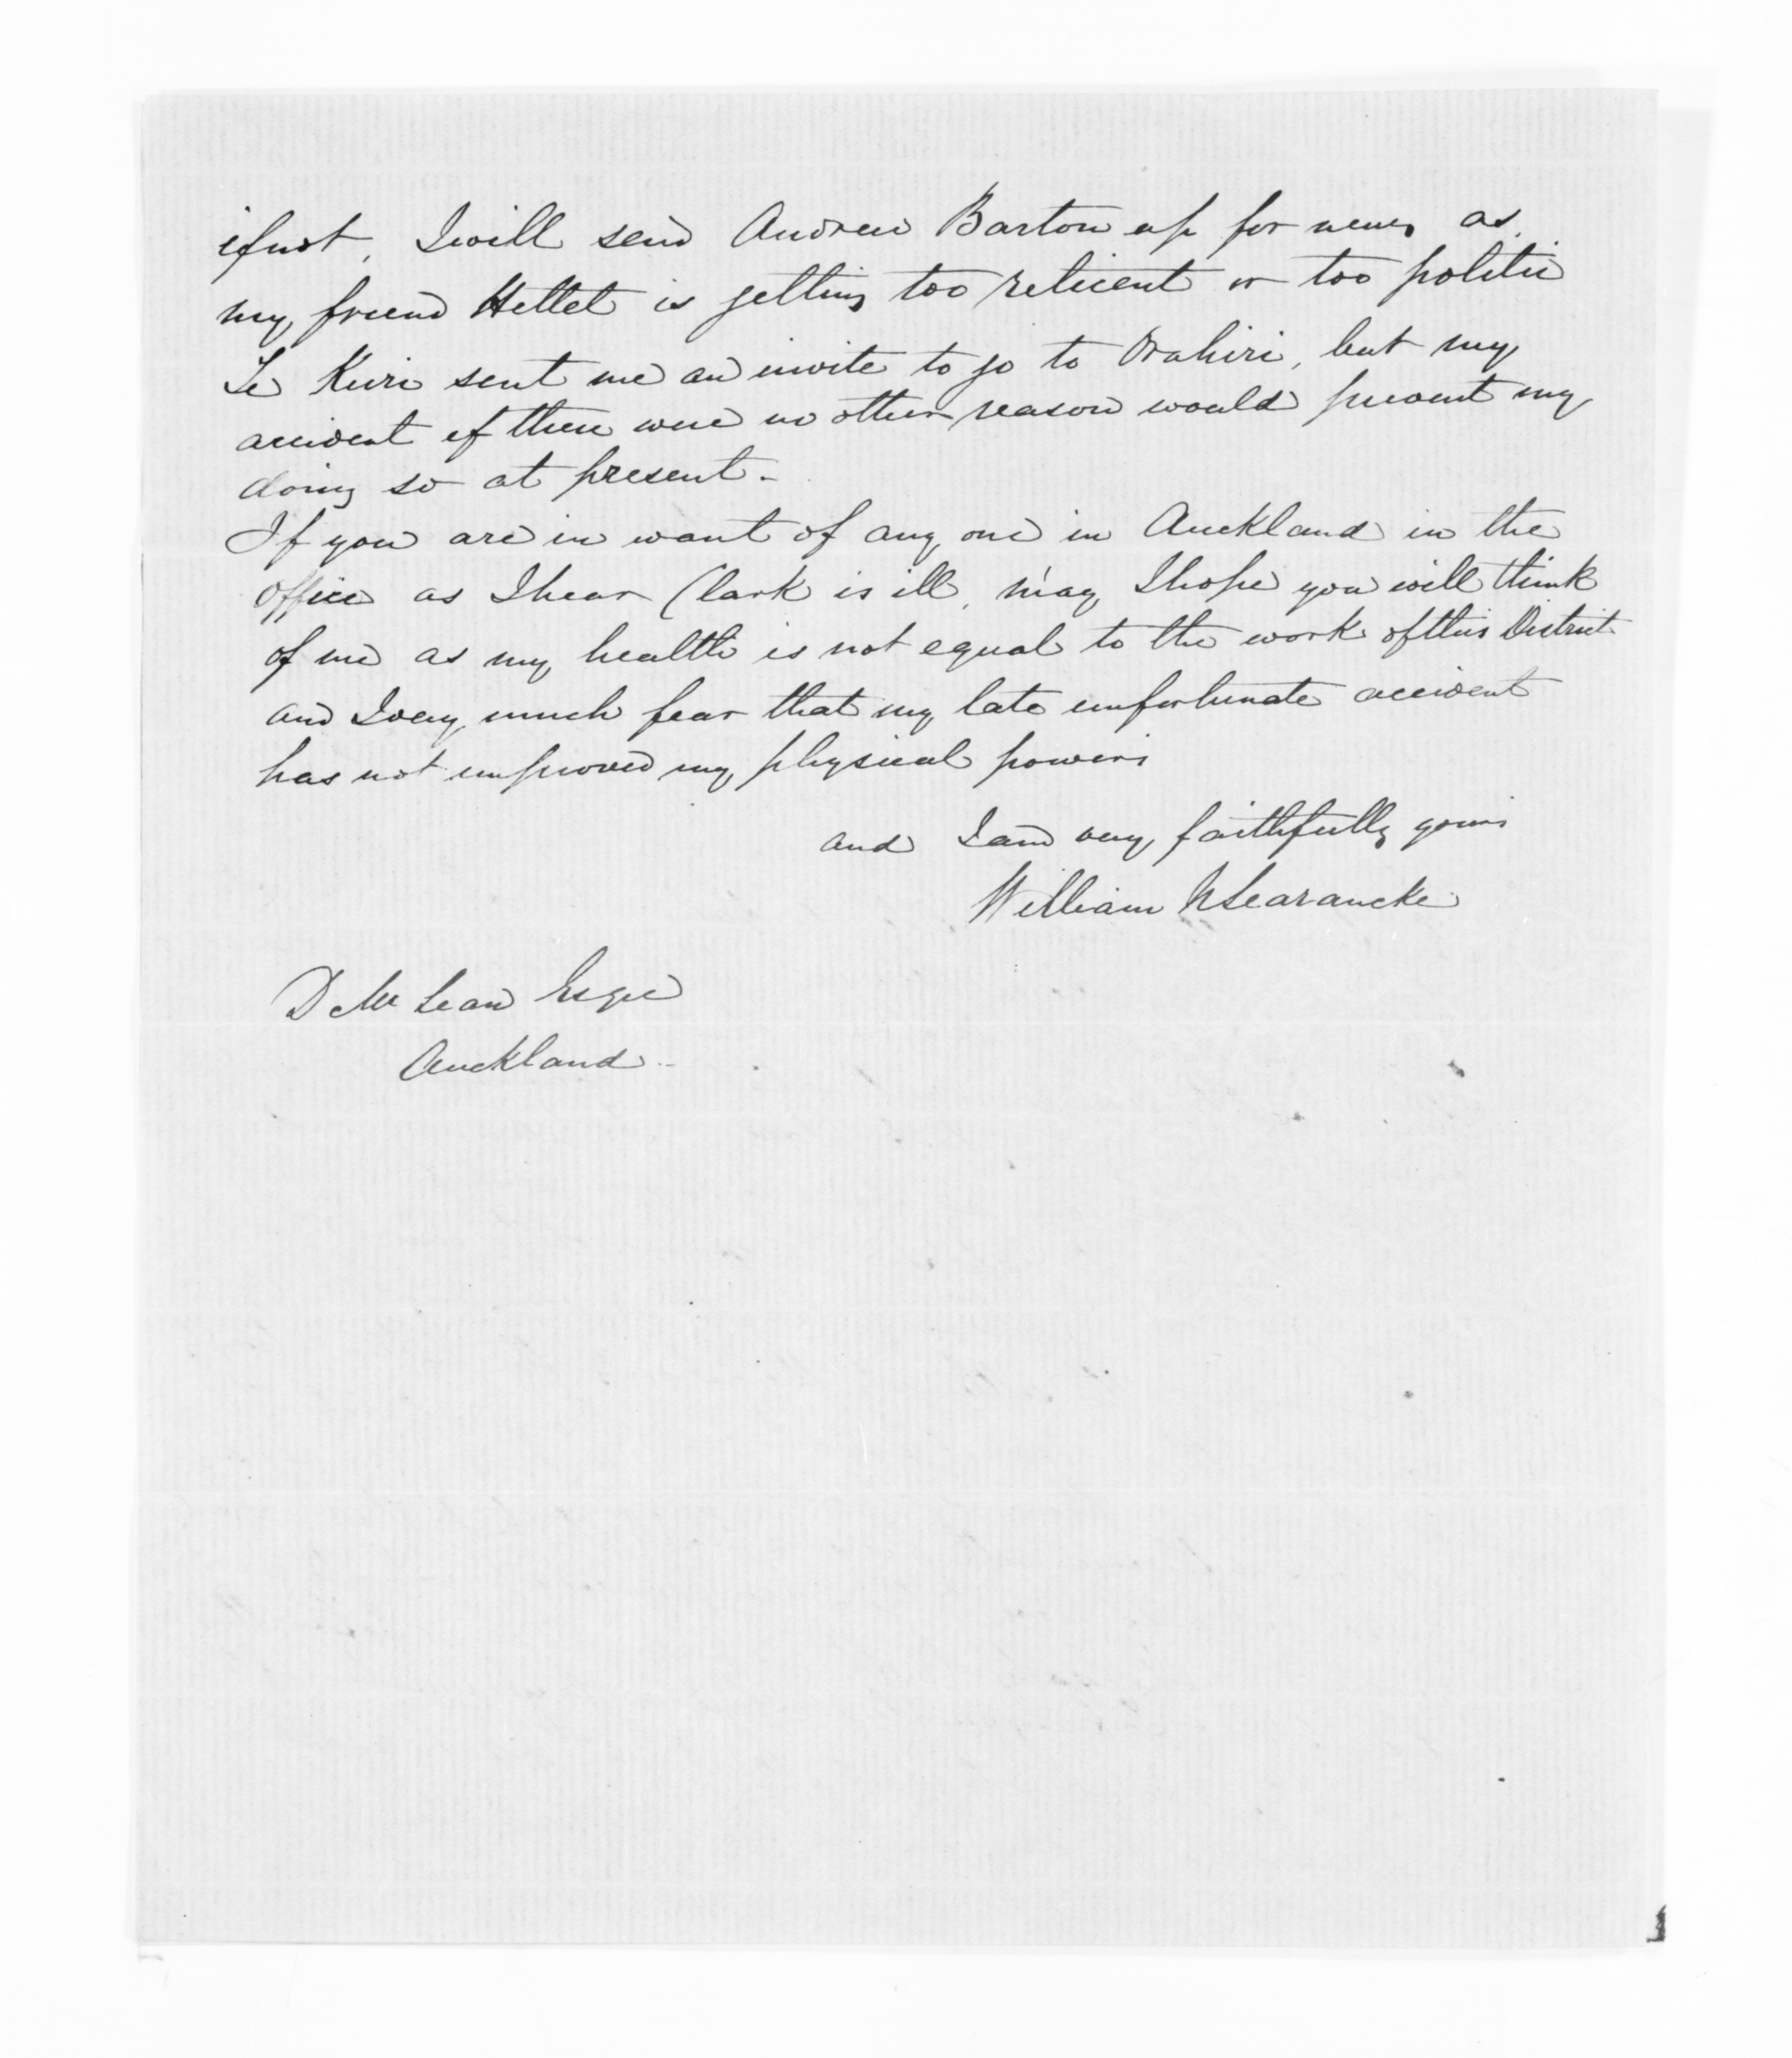 if not, I will send Andrew Barton up for news as
my friend Hettet is getting too reticent or too politic
Te Kuri sent me an invite to go to Orahiri, but my
accident if there were no other reason would prevent my
doing so at present -
If you are in want of any one in Auckland in the
office as I hear Clark is ill, may I hope you will think
of me as my health is not equal to the work of this District
and I very much fear that my late unfortunate accident
has not improved my physical powers
and I am very faithfully yours
William N Searancke
D McLean Esqre
Auckland -